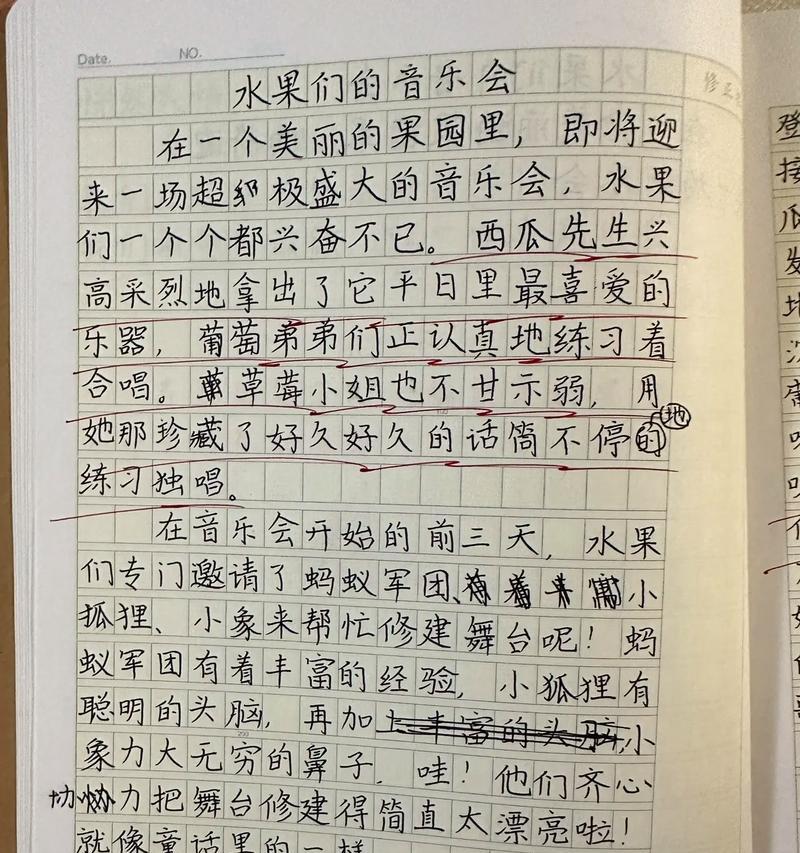 Date. NO.
水果们的音乐会
在一个美丽的果园里，即将迎
来一场超级极盛大的音乐会，水果
们一个个都兴奋不已。西瓜先生兴
高采烈地拿出了它平日里最喜爱的
乐器，葡萄弟弟们正认真地练习着
合唱。草莓小姐也不甘示弱，用
她那珍藏了好久好久的话筒不停的地
练习独唱。
在音乐会开始的前三天，水果
们专门邀请了蚂蚁军团、小
狐狸、小象来帮忙修建舞台呢！蚂
蚁军团有着丰富的经验，小狐狸有
聪明的头脑，再加上丰富的头脑，小
象力大无穷的鼻子，哇！他们齐心
协力把舞台修建得简直太漂亮啦！
就像童话里的一样
修正
登
接
瓜
发
地